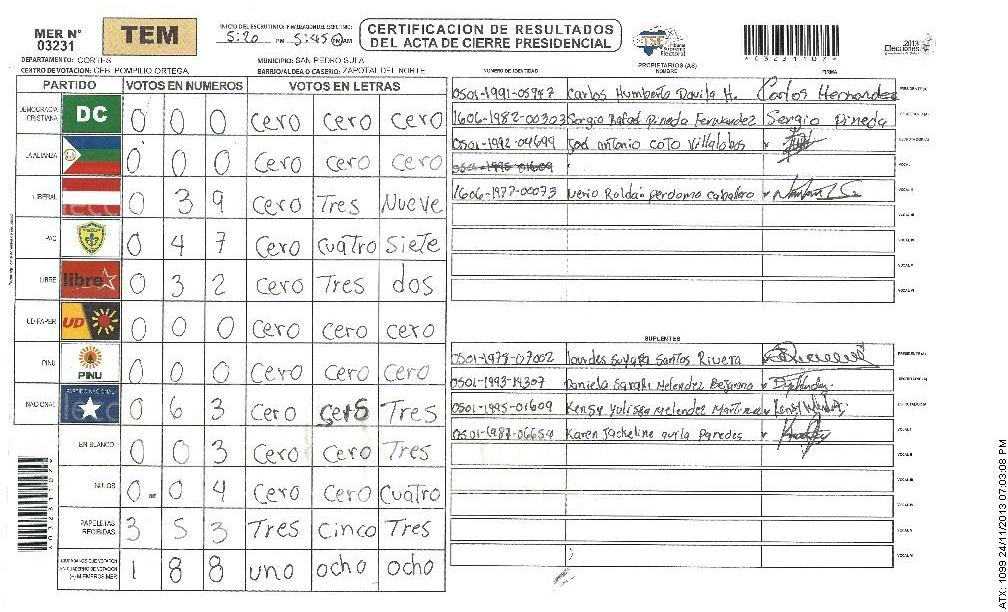 MER N°
03231
TEM
INICIO DEL ESCRUTINIO:
5:20 PM 5:45 PM AM
CERTIFICACION DE RESULTADOS
DEL ACTA DE CIERRE PRESIDENCIAL
TSE Tribunal Supremo Electoral
2013 Elecciones
DEPARTAMENTO: CORTES
MUNICIPIO: SAN PEDRO SULA
CENTRO DE VOTACION: CEB. POMPILIO ORTEGA
BARRIO/ALDEA O CASERIO: ZAPOTAL DEL NORTE
PARTIDO VOTOS EN NUMEROS VOTOS EN LETRAS
DEMOCRACIA CRISTIANA DC 0 0 0 cero cero cero
LA ALIANZA 0 0 0 cero cero cero
LIBERAL 0 3 9 cero Tres Nueve
PAC 0 4 7 cero cuatro siete
LIBRE libre 0 3 2 cero Tres dos
UD FAPER UD 0 0 0 cero cero cero
PINU PINU 0 0 0 cero cero cero
NACIONAL PARTIDO NACIONAL 0 6 3 cero Tres
EN BLANCO 0 0 3 cero cero Tres
NULOS 0 0 4 cero cero cuatro
PAPELETAS RECIBIDAS 3 5 3 Tres cinco Tres
CIUDADANOS QUE VOTARON EN CUADERNO DE VOTACION (+) MIEMBROS MER 1 8 8 uno ocho ocho
NUMERO DE IDENTIDAD PROPIETARIOS (AS) NOMBRE FIRMA
0501-1991-05947 Carlos Humberto Davila H. Carlos Hernandez PRESIDENTE(A)
1606-1982-00303 Sergio Rafael Pineda Fernandez Sergio Pineda
0501-1992-04699 Jose antonio coto Villalobos
0501-1995-01609 VOCAL I
1606-1977-00073 Nerio Roldan perdomo caballero VOCAL II
VOCAL III
VOCAL IV
VOCAL V
VOCAL VI
SUPLENTES
0501-1978-07002 Lourdes Suyapa Santos Rivera PRESIDENTE(A)
0501-1993-14307 Daniela Sarahi Melendez Bejarano SECRETARIO(A)
0501-1995-01609 Kensy Yulissa Melendez Martinez ESCRUTADOR(A)
0501-1987-06654 Karen Jackeline avila Paredes VOCAL I
VOCAL II
VOCAL III
VOCAL IV
VOCAL V
VOCAL VI
ATX: 1099 24/11/2013 07:03:08 PM